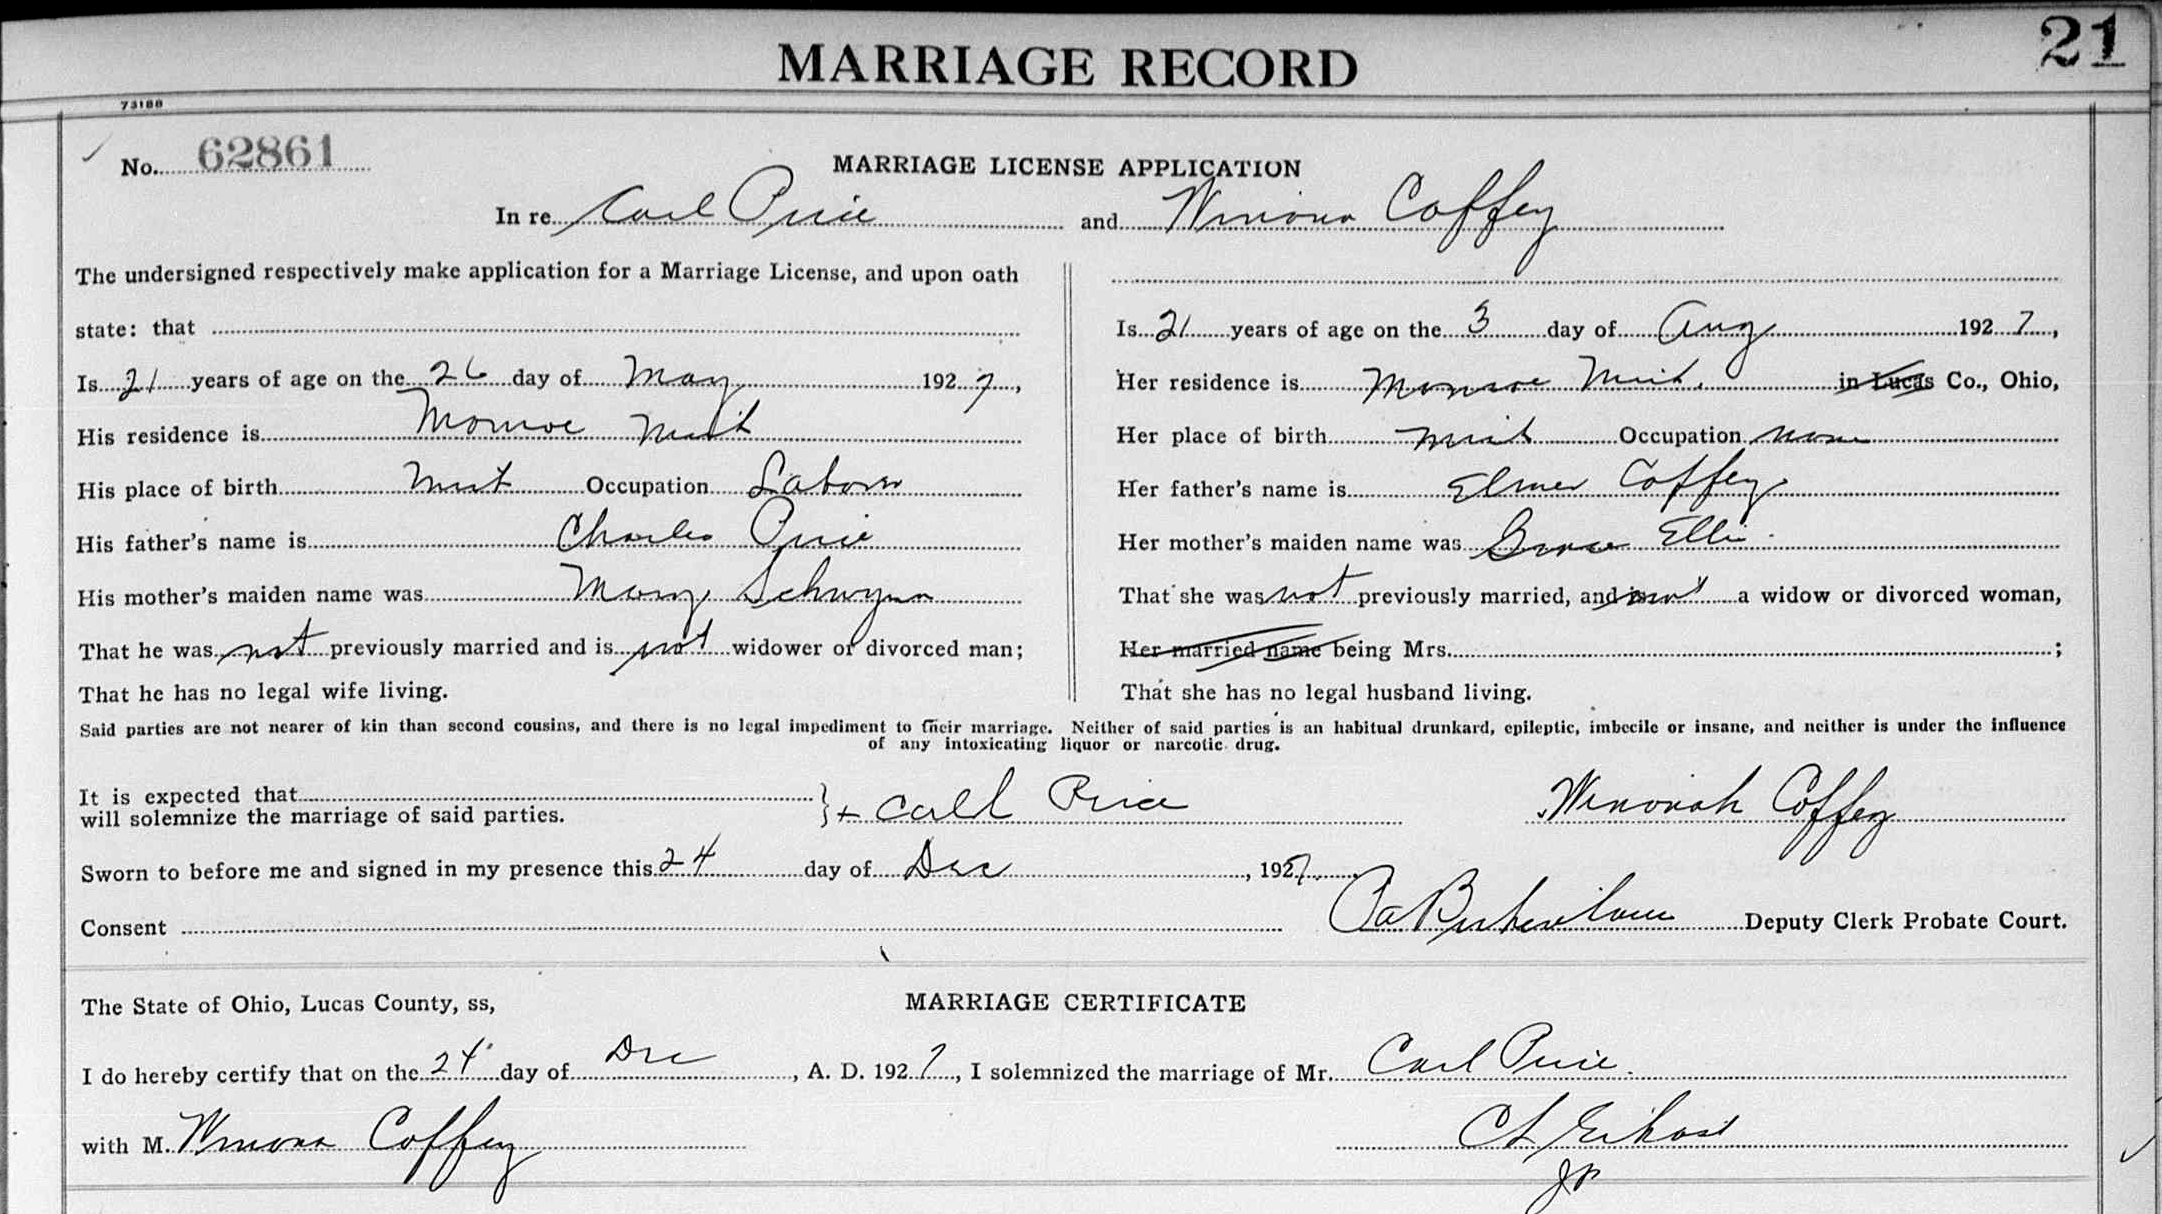 MARRIAGE RECORD
21
73188
No. 62861
MARRIAGE LICENSE APPLICATION
In re Carl Price and Winona Coffey
The undersigned respectively make application for a Marriage License, and upon oath
state: that
Is 21 years of age on the 26 day of May 1927,
His residence is Monroe Mich
His place of birth Mich Occupation Laborer
His father's name is Charles Price
His mother's maiden name was Mary
That he was not previously married and is not widower or divorced man;
That he has no legal wife living.
Is 21 years of age on the 3 day of Aug 1927,
Her residence is Monroe Mich. in Lucas Co., Ohio,
Her place of birth Mich Occupation none
Her father's name is Elmer Coffey
Her mother's maiden name was Grace
That she was not previously married, and is not a widow or divorced woman,
Her married name being Mrs. ;
That she has no legal husband living.
Said parties are not nearer of kin than second cousins, and there is no legal impediment to their marriage. Neither of said parties is an habitual drunkard, epileptic, imbecile or insane, and neither is under the influence
of any intoxicating liquor or narcotic drug.
It is expected that
will solemnize the marriage of said parties.
+ Carl Price Winonah Coffey
Sworn to before me and signed in my presence this 24 day of Dec, 1927
Consent Deputy Clerk Probate Court.
The State of Ohio, Lucas County, ss,
MARRIAGE CERTIFICATE
I do hereby certify that on the 24 day of Dec, A. D. 1927, I solemnized the marriage of Mr. Carl Price.
with M. Winona Coffey
JP